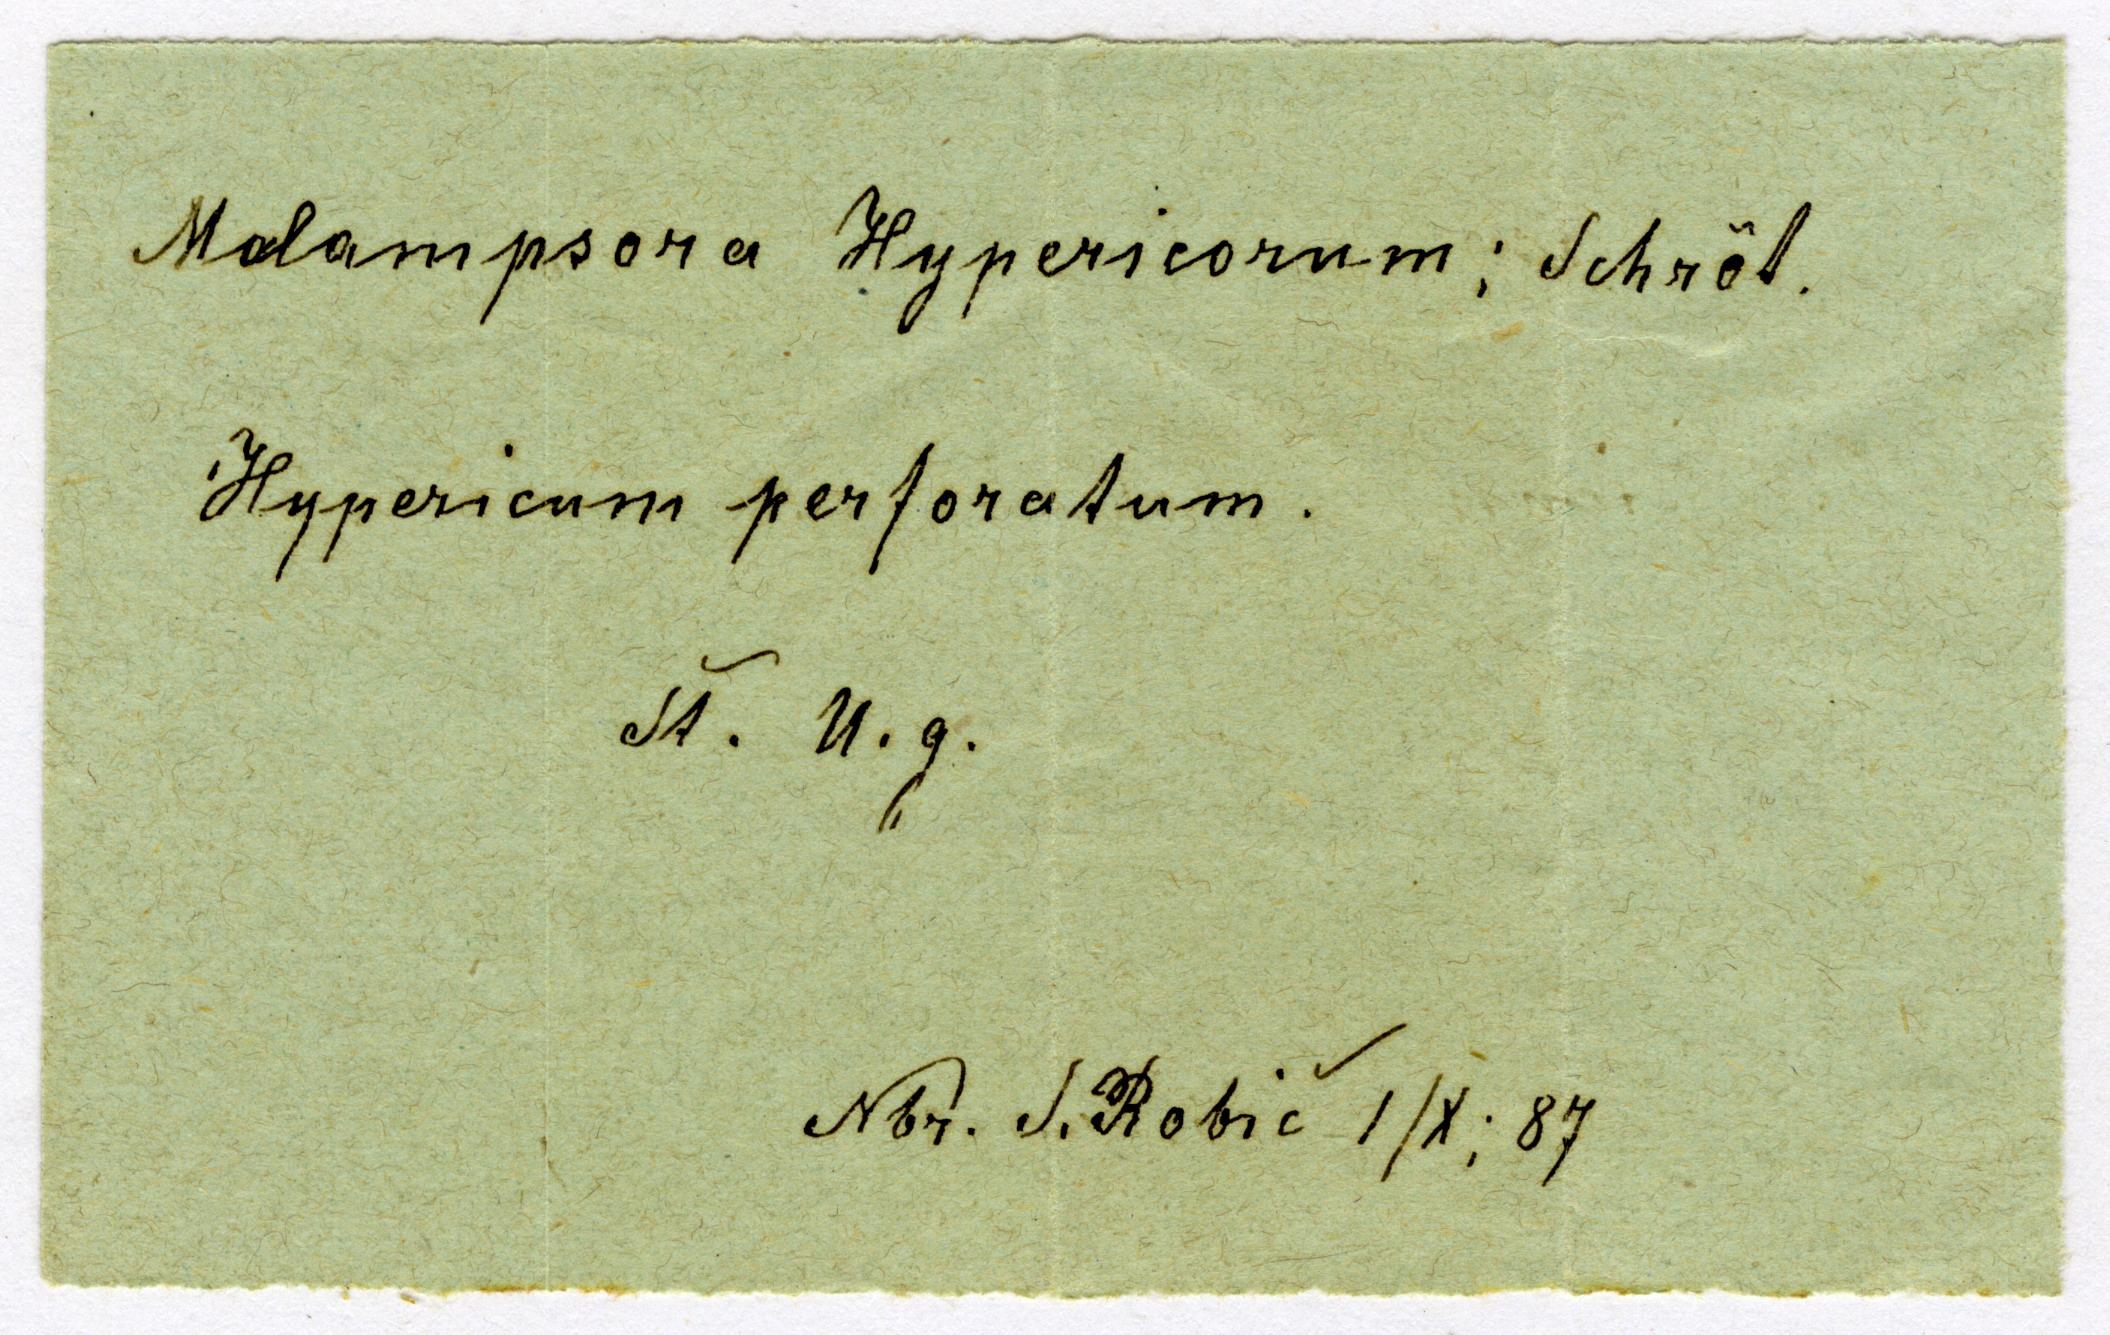 Melampsora Hypericorum; Schröt.
Hypericum perforatum.
Št. U. g.
Nbr. S. Robič 1/X; 87